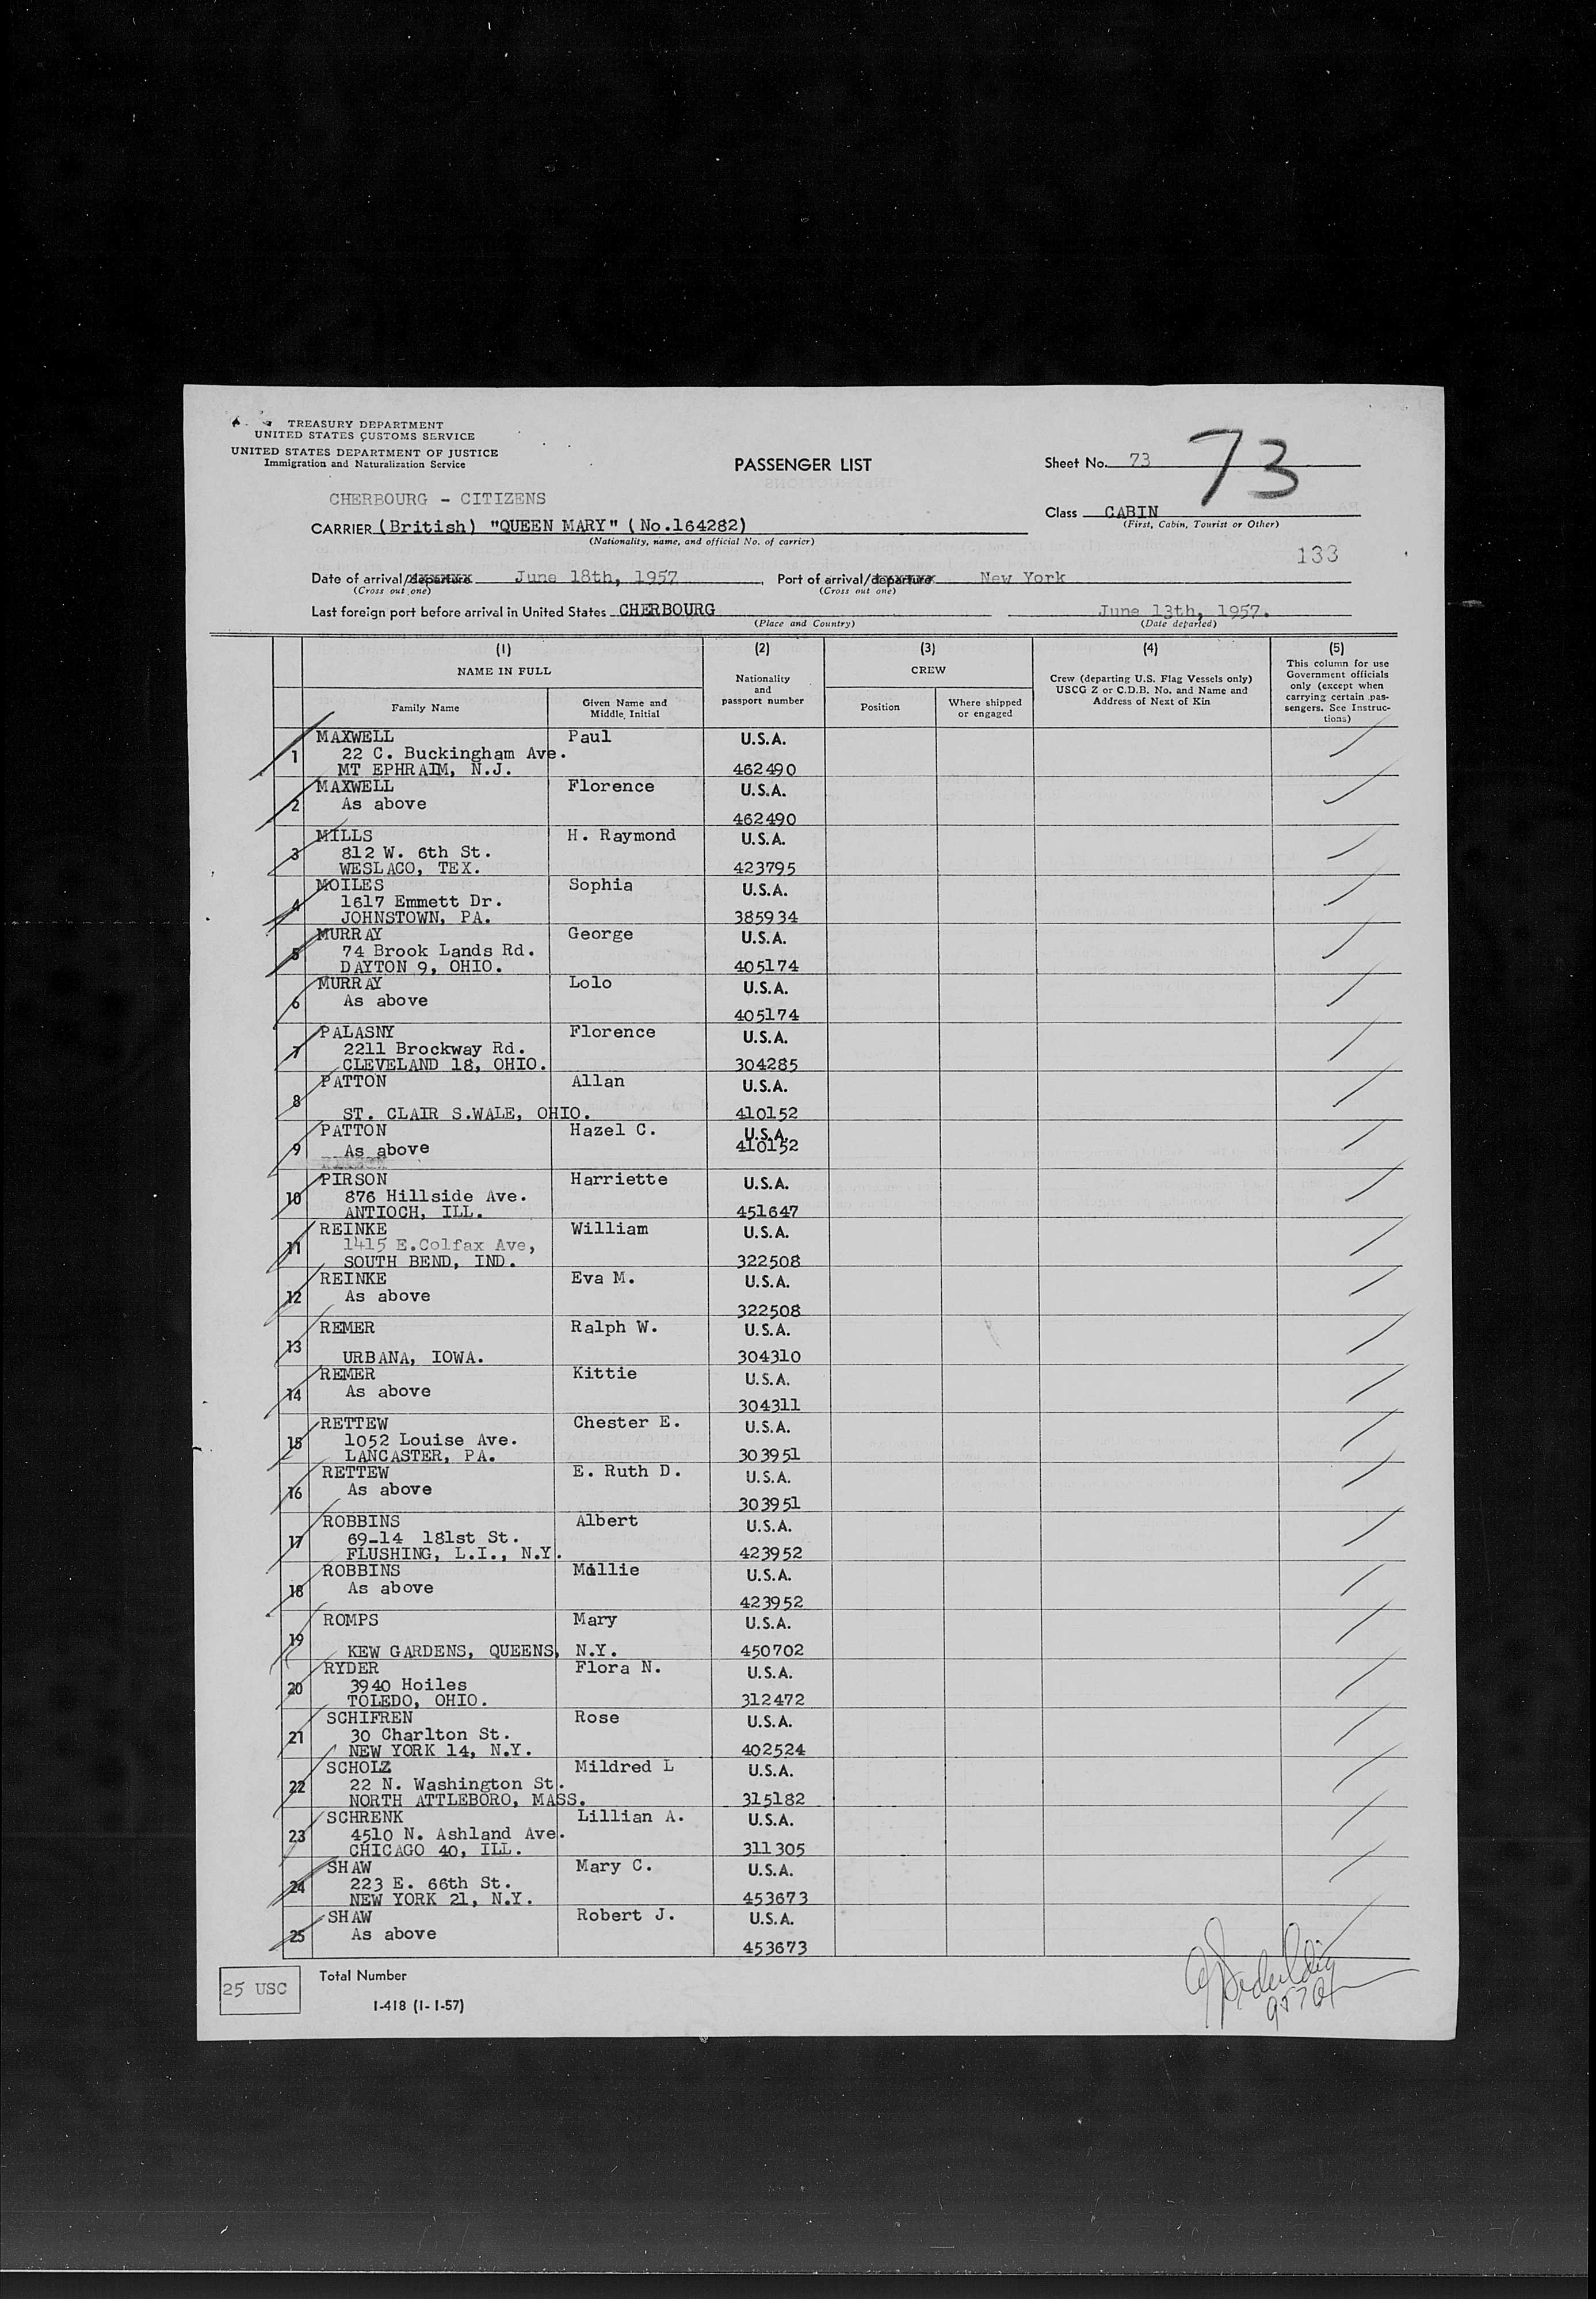 TREASURY DEPARTMENT
UNITED STATES CUSTOMS SERVICE
UNITED STATES DEPARTMENT OF JUSTICE
Immigration and Naturalization Service
PASSENGER LIST
Sheet No. 73
73
CHERBOURG - CITIZENS
Class CABIN
(First, Cabin, Tourist or Other)
CARRIER (British) "QUEEN MARY" (No.164282)
(Nationality, name, and official No. of carrier)
133
Date of arrival/departure June 18th, 1957 , Port of arrival/departure New York
(Cross out one) (Cross out one)
Last foreign port before arrival in United States CHERBOURG June 13th, 1957.
(Place and Country) (Date departed)
(1) (2) (3) (4) (5)
NAME IN FULL
Family Name
Given Name and Middle Initial
Nationality and passport number
CREW
Position
Where shipped or engaged
Crew (departing U.S. Flag Vessels only) USCG Z or C.D.B. No. and Name and Address of Next of Kin
This column for use Government officials only (except when carrying certain pas- sengers. See Instruc- tions)
1 MAXWELL Paul U.S.A.
22 C. Buckingham Ave.
MT EPHRAIM, N.J. 462490
2 MAXWELL Florence U.S.A.
As above
462490
3 MILLS H. Raymond U.S.A.
812 W. 6th St.
WESLACO, TEX. 423795
4 MOILES Sophia U.S.A.
1617 Emmett Dr.
JOHNSTOWN, PA. 385934
5 MURRAY George U.S.A.
74 Brook Lands Rd.
DAYTON 9, OHIO. 405174
6 MURRAY Lolo U.S.A.
As above
405174
7 PALASNY Florence U.S.A.
2211 Brockway Rd.
CLEVELAND 18, OHIO. 304285
8 PATTON Allan U.S.A.
ST. CLAIR S.WALE, OHIO. 410152
9 PATTON Hazel C. U.S.A.
As above 410152
10 PIRSON Harriette U.S.A.
876 Hillside Ave.
ANTIOCH, ILL. 451647
11 REINKE William U.S.A.
1415 E.Colfax Ave,
SOUTH BEND, IND. 322508
12 REINKE Eva M. U.S.A.
As above
322508
13 REMER Ralph W. U.S.A.
URBANA, IOWA. 304310
14 REMER Kittie U.S.A.
As above
304311
15 RETTEW Chester E. U.S.A.
1052 Louise Ave.
LANCASTER, PA. 303951
16 RETTEW E. Ruth D. U.S.A.
As above
303951
17 ROBBINS Albert U.S.A.
69-14 181st St.
FLUSHING, L.I., N.Y. 423952
18 ROBBINS Millie U.S.A.
As above
423952
19 ROMPS Mary U.S.A.
KEW GARDENS, QUEENS, N.Y. 450702
20 RYDER Flora N. U.S.A.
3940 Hoiles
TOLEDO, OHIO. 312472
21 SCHIFREN Rose U.S.A.
30 Charlton St.
NEW YORK 14, N.Y. 402524
22 SCHOLZ Mildred L U.S.A.
22 N. Washington St.
NORTH ATTLEBORO, MASS. 315182
23 SCHRENK Lillian A. U.S.A.
4510 N. Ashland Ave.
CHICAGO 40, ILL. 311305
24 SHAW Mary C. U.S.A.
223 E. 66th St.
NEW YORK 21, N.Y. 453673
25 SHAW Robert J. U.S.A.
As above
453673
25 USC
Total Number
I-418 (1-1-57)